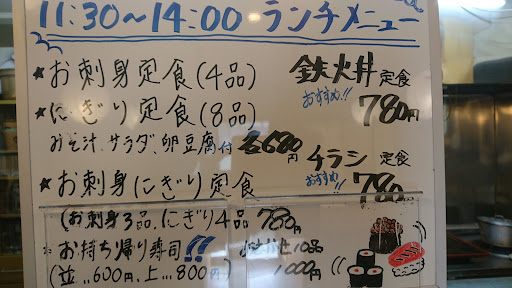 11:30～14:00 ランチメニュー
★お刺身定食(4品)
鉄火丼定食
おすすめ!! 780円
★にぎり定食(8品)
みそ汁、サラダ、卵豆腐付 各680円
チラシ定食
おすすめ!! 780円
★お刺身にぎり定食
(お刺身3品、にぎり4品 780円
お持ち帰り寿司!!
(並...600円、上...800円)
10品
1000円